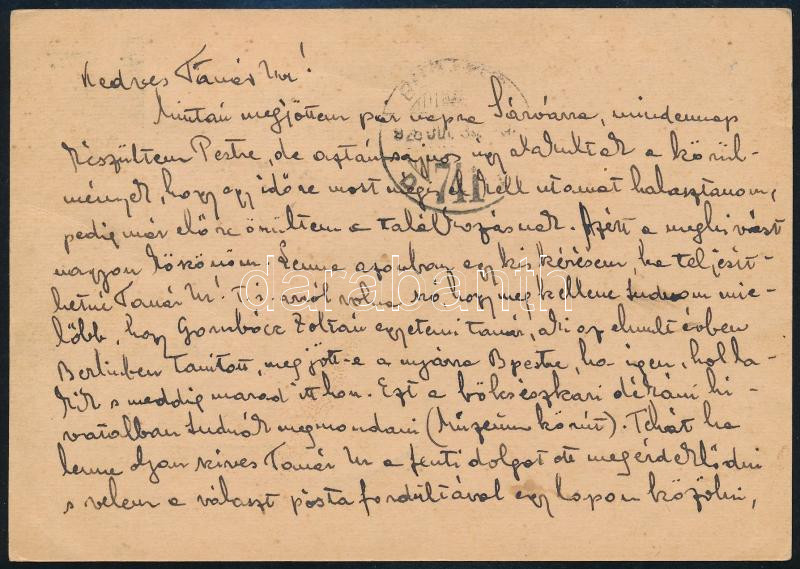 Kedves Tanár Ur!
Miután megjöttem pár napra Sárvárra, mindennap
készültem Pestre, de aztán sajnos ugy alakultak a körül-
mények, hogy egy időre most megint el kell utamat halasztanom,
pedig már előre örültem a találkozásnak. Azért a meghivást
nagyon köszönöm. Lenne azonban egy kis kérésem, ha teljesit-
hetné Tanár Ur! T. i. arról volna szó hogy meg kellene tudnom mie-
lőbb, hogy Gombócz Zoltán egyetemi tanár, aki az elmult évben
Berlinben tanitott, megjött-e a nyárra Bpestre, ha igen, hol la-
kik s meddig marad itthon. Ezt a bölcsészkari dékáni hi-
vatalban tudnák megmondani (Múzeum körút). Tehát ha
lenne olyan szives Tanár Ur a fenti dolgot ott megérdeklődni
s velem a választ posta fordultával egy lapon közölni,
741
darabanth